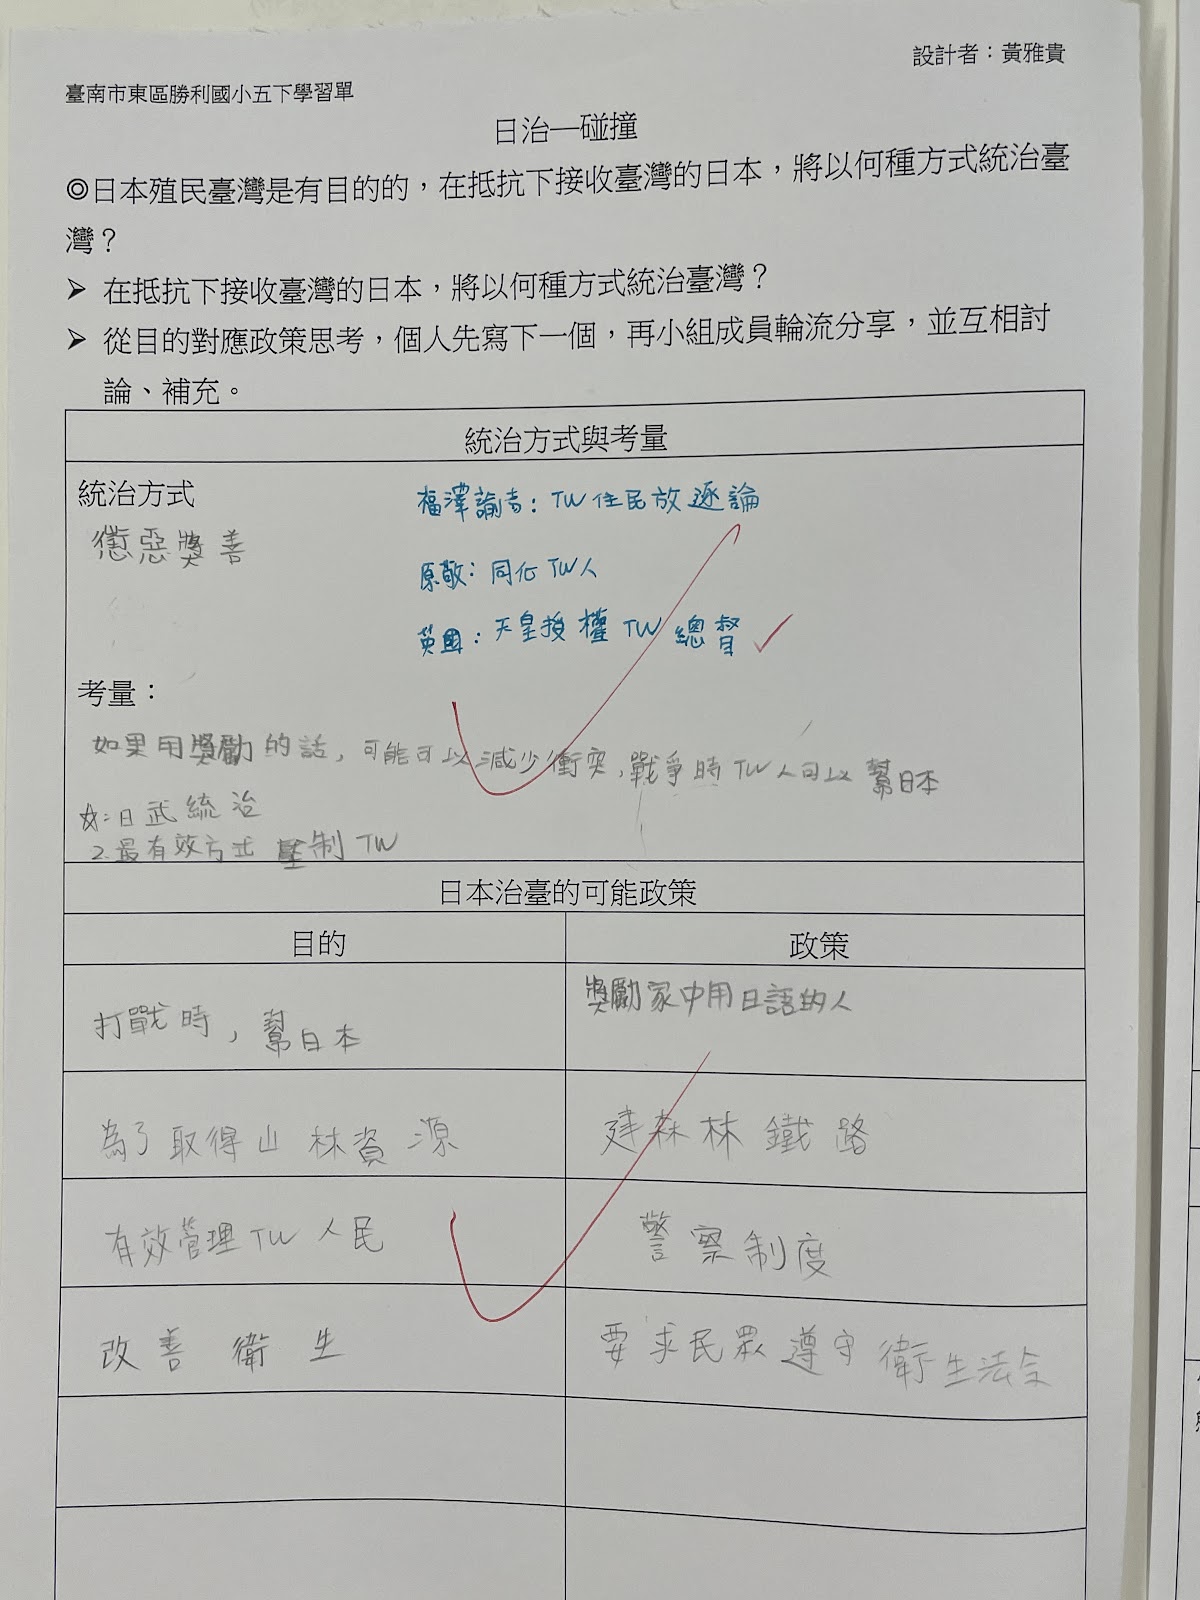 設計者：黃雅貴
臺南市東區勝利國小五下學習單
日治—碰撞
◎日本殖民臺灣是有目的的，在抵抗下接收臺灣的日本，將以何種方式統治臺
灣？
➤ 在抵抗下接收臺灣的日本，將以何種方式統治臺灣？
➤ 從目的對應政策思考，個人先寫下一個，再小組成員輪流分享，並互相討
論、補充。
統治方式與考量
統治方式
懲惡獎善
福澤諭吉：TW住民放逐論
原敬：同化TW人
英國：天皇授權TW總督
考量：
如果用獎勵的話，可能可以減少衝突，戰爭時TW人可以幫日本
☆：日武統治
2.最有效方式壓制TW
日本治臺的可能政策
目的
政策
打戰時，幫日本
獎勵家中用日語的人
為了取得山林資源
建森林鐵路
有效管理TW人民
警察制度
改善衛生
要求民眾遵守衛生法令